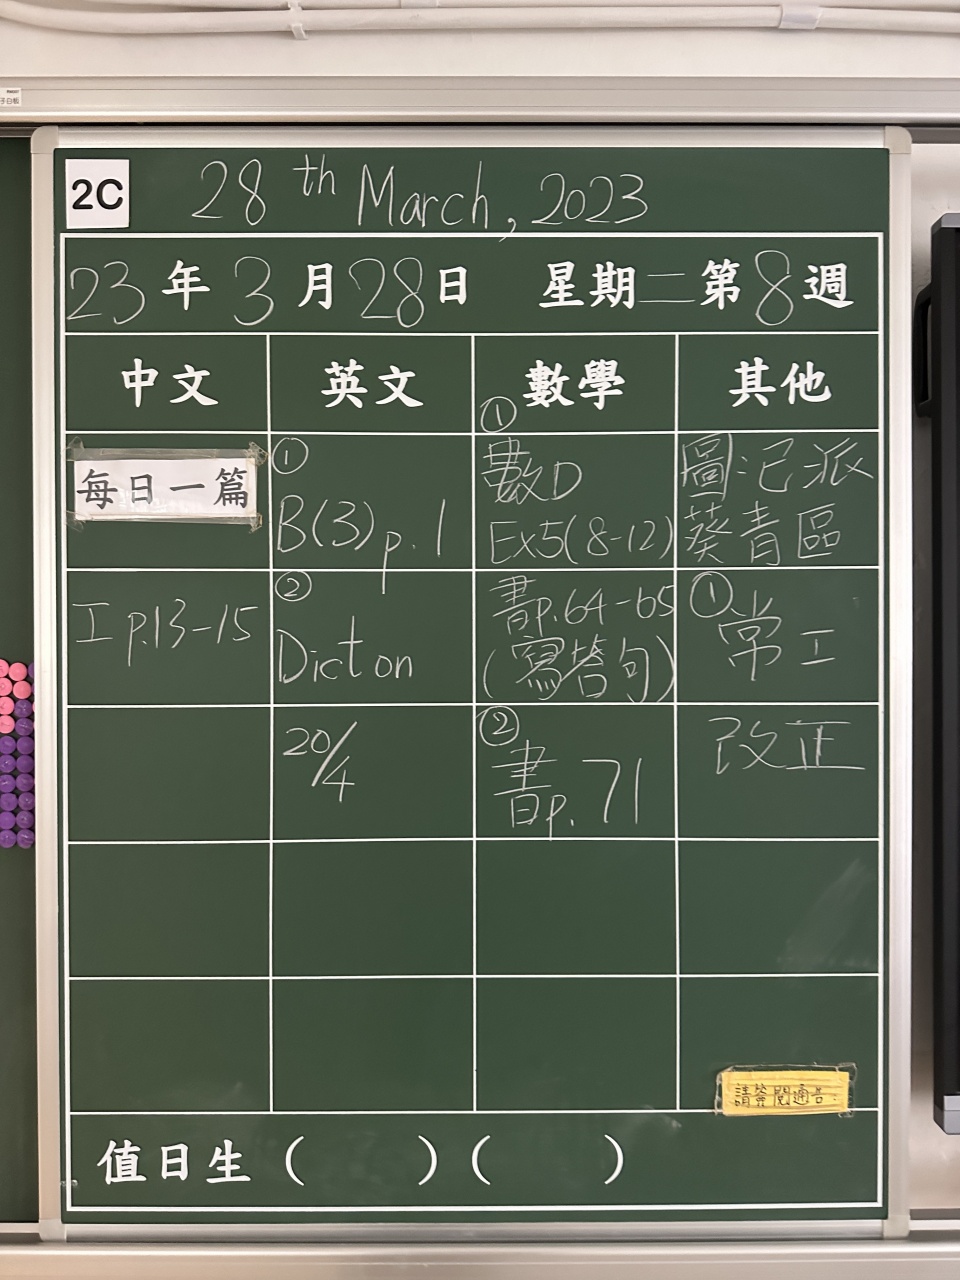 2C
28th March, 2023
23年3月28日 星期二第8週
中文 英文 數學 其他
每日一篇
① B(3) p. 1
① 數D
Ex5(8-12)
圖:已派
葵青區
工p.13-15
② Dict on
書p.64-65
(寫答句)
① 常工
20/4
② 書p. 71
改正
請簽閱通告
值日生 ( ) ( )